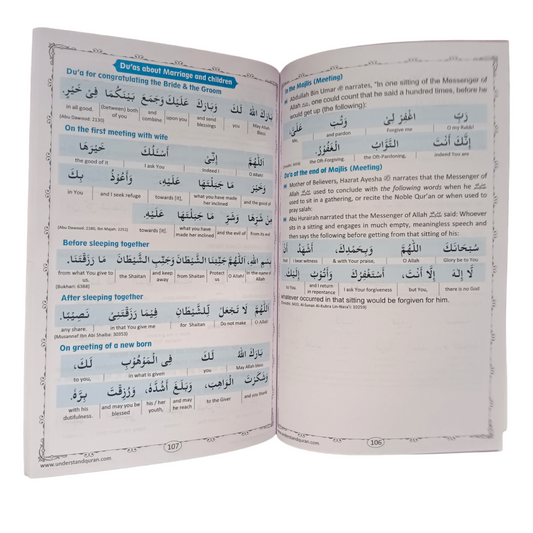 in the Majlis (Meeting)
Abdullah Bin Umar narrates, "In one sitting of the Messenger of
Allah, one could count that he said a hundred times, before he
would get up (the following):
رَبِّ اغْفِرْ لِيْ وَتُبْ عَلَيَّ
O my Rabb! Forgive me and pardon Me,
إِنَّكَ أَنْتَ التَّوَّابُ الْغَفُوْرُ
indeed You are the Oft-Pardoning, the Oft-Forgiving.
Du'a at the end of Majlis (Meeting)
Mother of Believers, Hazrat Ayesha narrates that the Messenger of
Allah used to conclude with the following words when he
used to sit in a gathering, or recite the Noble Qur'an or when used to
pray salah.
Abu Hurairah narrated that the Messenger of Allah said: Whoever
sits in a sitting and engages in much empty, meaningless speech and
then says the following before getting from that sitting of his:
سُبْحَانَكَ اللَّهُمَّ وَبِحَمْدِكَ، أَشْهَدُ أَنْ
Glory be to You O Allah & with Your praise, I bear witness
لَّا إِلٰهَ إِلَّا أَنْتَ، أَسْتَغْفِرُكَ وَأَتُوْبُ إِلَيْكَ
there is no God but You, I ask Your forgiveness and I return in repentance to You
whatever occurred in that sitting would be forgiven for him.
106
Du'as about Marriage and children
Du'a for congratulating the Bride & the Groom
بَارَكَ اللهُ لَكَ وَبَارَكَ عَلَيْكَ وَجَمَعَ بَيْنَكُمَا فِيْ خَيْرٍ.
May Allah Bless you and send blessings upon you and combine (between) both of you in all good.
(Abu Dawood: 2130)
On the first meeting with wife
اَللّٰهُمَّ إِنِّيْ أَسْئَلُكَ خَيْرَهَا
O Allah! Indeed I I ask You the good of it
وَخَيْرَ مَا جَبَلْتَهَا عَلَيْهِ، وَأَعُوْذُ بِكَ
and the good of what you have made her inclined towards [it], and I seek refuge in You
مِنْ شَرِّهَا وَشَرِّ مَا جَبَلْتَهَا عَلَيْهِ.
from its evil and the evil of what you have made her inclined towards [it].
Before sleeping together
بِسْمِ اللهِ، اَللّٰهُمَّ جَنِّبْنَا الشَّيْطَانَ وَجَنِّبِ الشَّيْطَانَ مَا رَزَقْتَنَا.
In the name of Allah O Allah! Protect us from Shaitan and keep away the Shaitan from what You give to us.
(Bukhari: 6388)
After sleeping together
اَللّٰهُمَّ لَا تَجْعَلْ لِلشَّيْطَانِ فِيْمَا رَزَقْتَنِيْ نَصِيْبًا.
O Allah! Do not make for Shaitan in that You give me any share.
(Musannaf Ibn Abi Shaiba: 30353)
On greeting of a new born
بَارَكَ اللهُ لَكَ فِي الْمَوْهُوْبِ لَكَ،
May Allah bless you in what is given to you,
وَشَكَرْتَ الْوَاهِبَ، وَبَلَغَ أَشُدَّهُ، وَرُزِقْتَ بِرَّهُ.
and you thank to the Giver and may he reach his / her youth, and may you be blessed with his dutifulness.
107
www.understandquran.com
www.understandquran.com